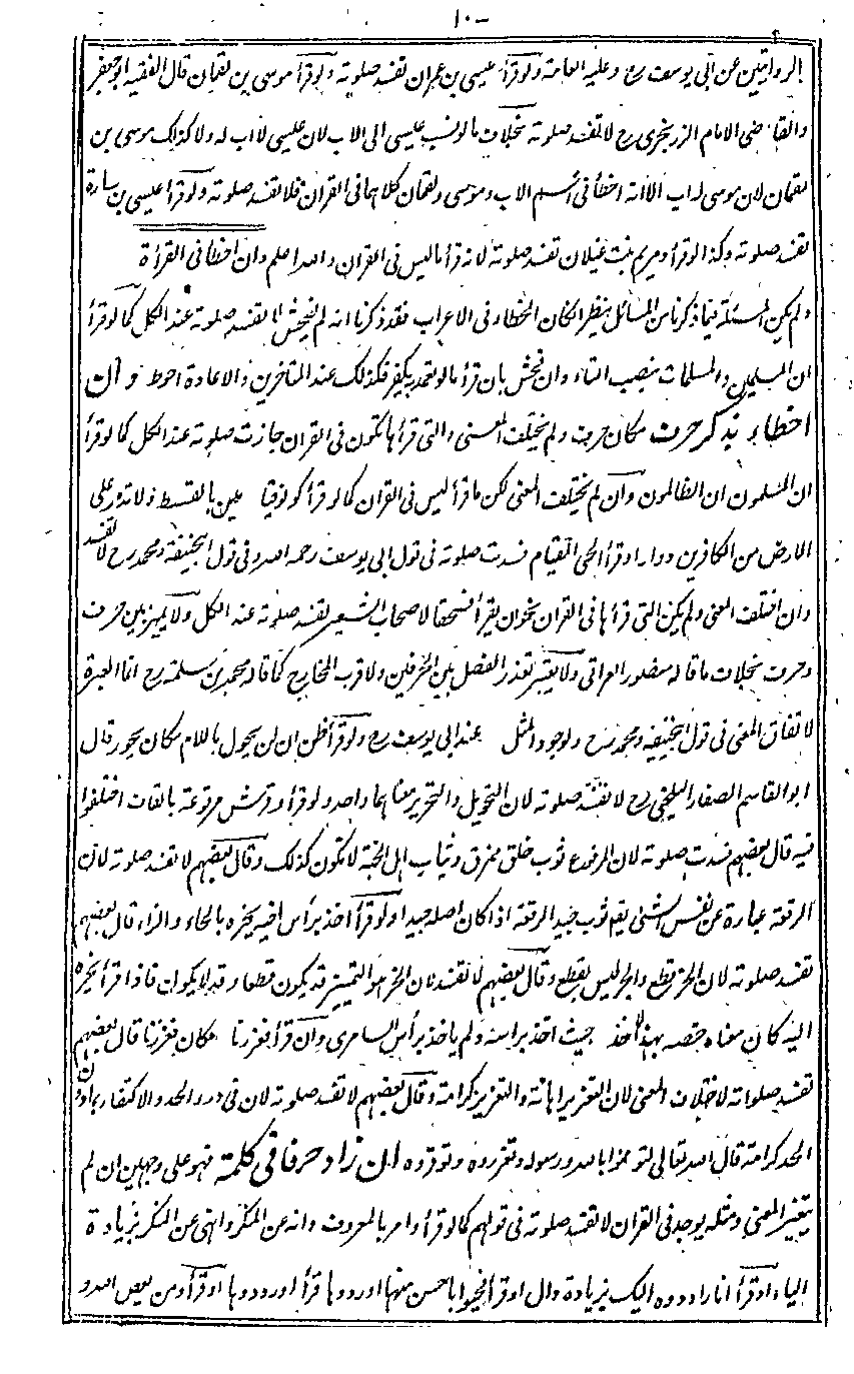 ١٠-
الروايتين عن ابى يوسف رح وعليه العامة ولو قرأ عيسى بن عمران تفسد صلوته ولو قرأ موسى بن لقمان قال الفقيه ابو جعفر
والقاضى الامام الزرنجرى رح لا تفسد صلوته بخلاف ما لو نسب عيسى الى الاب لان عيسى لا اب له ولا كذلك موسى بن
لقمان لان موسى له اب الا انه اخطأ فى اسم الاب وموسى ولقمان كلاهما فى القران فلا تفسد صلوته ولو قرأ عيسى بن سارة
تفسد صلوته وكذا لو قرأ ومريم بنت غيلان تفسد صلوته لانه قرأ ما ليس فى القران والله اعلم وان اخطأ فى القرأة
ولم يكن المسئلة فيما ذكرنا من المسائل ينظر ان كان الخطاء فى الاعراب فقد ذكرنا انه لم يفحش لا تفسد صلوته عند الكل كما لو قرأ
ان المسلمين والمسلمات بنصب التاء وان فحش بان قرأ ما لو تعمد يكفر فكذلك عند المتأخرين والاعادة احوط وان
اخطاء بذكر حرف مكان حرف ولم يختلف المعنى والتى قرأها تكون فى القران جازت صلوته عند الكل كما لو قرأ
ان المسلمون ان الظالمون وان لم يختلف المعنى لكن ما قرأ ليس فى القران كما لو قرأ كونوا قيامين بالقسط ولا تذر على
الارض من الكافرين دوارا وقرأ الحى القيام فسدت صلوته فى قول ابى يوسف رحمه الله وفى قول ابيحنيفة ومحمد رح لا تفسد
وان اختلف المعنى ولم يكن التى قرأها فى القران نحو ان يقرأ فسحقا لاصحاب الشعير تفسد صلوته عند الكل ولا يميز بين حرف
وحرف بخلاف ما قاله منصور العراقى ولا يعتبر تعذر الفصل بين الحرفين ولا قرب المخارج كما قاله محمد بن سلمة رح انما العبرة
لاتفاق المعنى فى قول ابيحنيفة ومحمد رح ولوجود المثل عند ابى يوسف رح ولو قرأ ظن ان لن يحول باللام مكان يحور قال
ابو القاسم الصفار البلخى رح لا تفسد صلوته لان التحويل والتحرير معناهما واحد ولو قرأ وفرش مرقوعة بالقاف اختلفوا
فيه قال بعضهم فسدت صلوته لان المرقوع ثوب خلق ممزق وثياب اهل الجنة لا تكون كذلك وقال بعضهم لا تفسد صلوته لان
الرقعة عبارة عن نفس الشئ يقع ثوب جيد الرقعة اذا كان اصله جيدا ولو قرأ اخذ برأس اخيه يحزه بالحاء والزاء قال بعضهم
تفسد صلوته لان الحز قطع والجر ليس بقطع وقال بعضهم لا تفسد لان الحز هو التمييز قد يكون قطعا وقد لا يكون فاذا قرأ يحزه
اليه كان معناه خصه بهذا الاخذ حيث اخذ برأسه ولم ياخذ برأس السامرى وان قرأ فعزرنا مكان فعززنا قال بعضهم
تفسد صلواته لاختلاف المعنى لان التعزير اهانة والتعزيز كرامة وقال بعضهم لا تفسد صلوته لان فى درء الحد والاكتفاء بادون
الحد كرامة قال الله تعالى لتؤمنوا بالله ورسوله وتعزروه وتوقروه ان زاد حرفا فى كلمة فهو على وجهين ان لم
يتغير المعنى ومثله يوجد فى القران لا تفسد صلوته فى قولهم كما لو قرأ وامر بالمعروف وانه عن المنكر وانهى عن المنكر بزيادة
الياء او قرأ انا رادوه اليك بزيادة وال او قرأ فحيوا باحسن منها او ردوها قرأ او رددوها او قرأ ومن يعص الله و